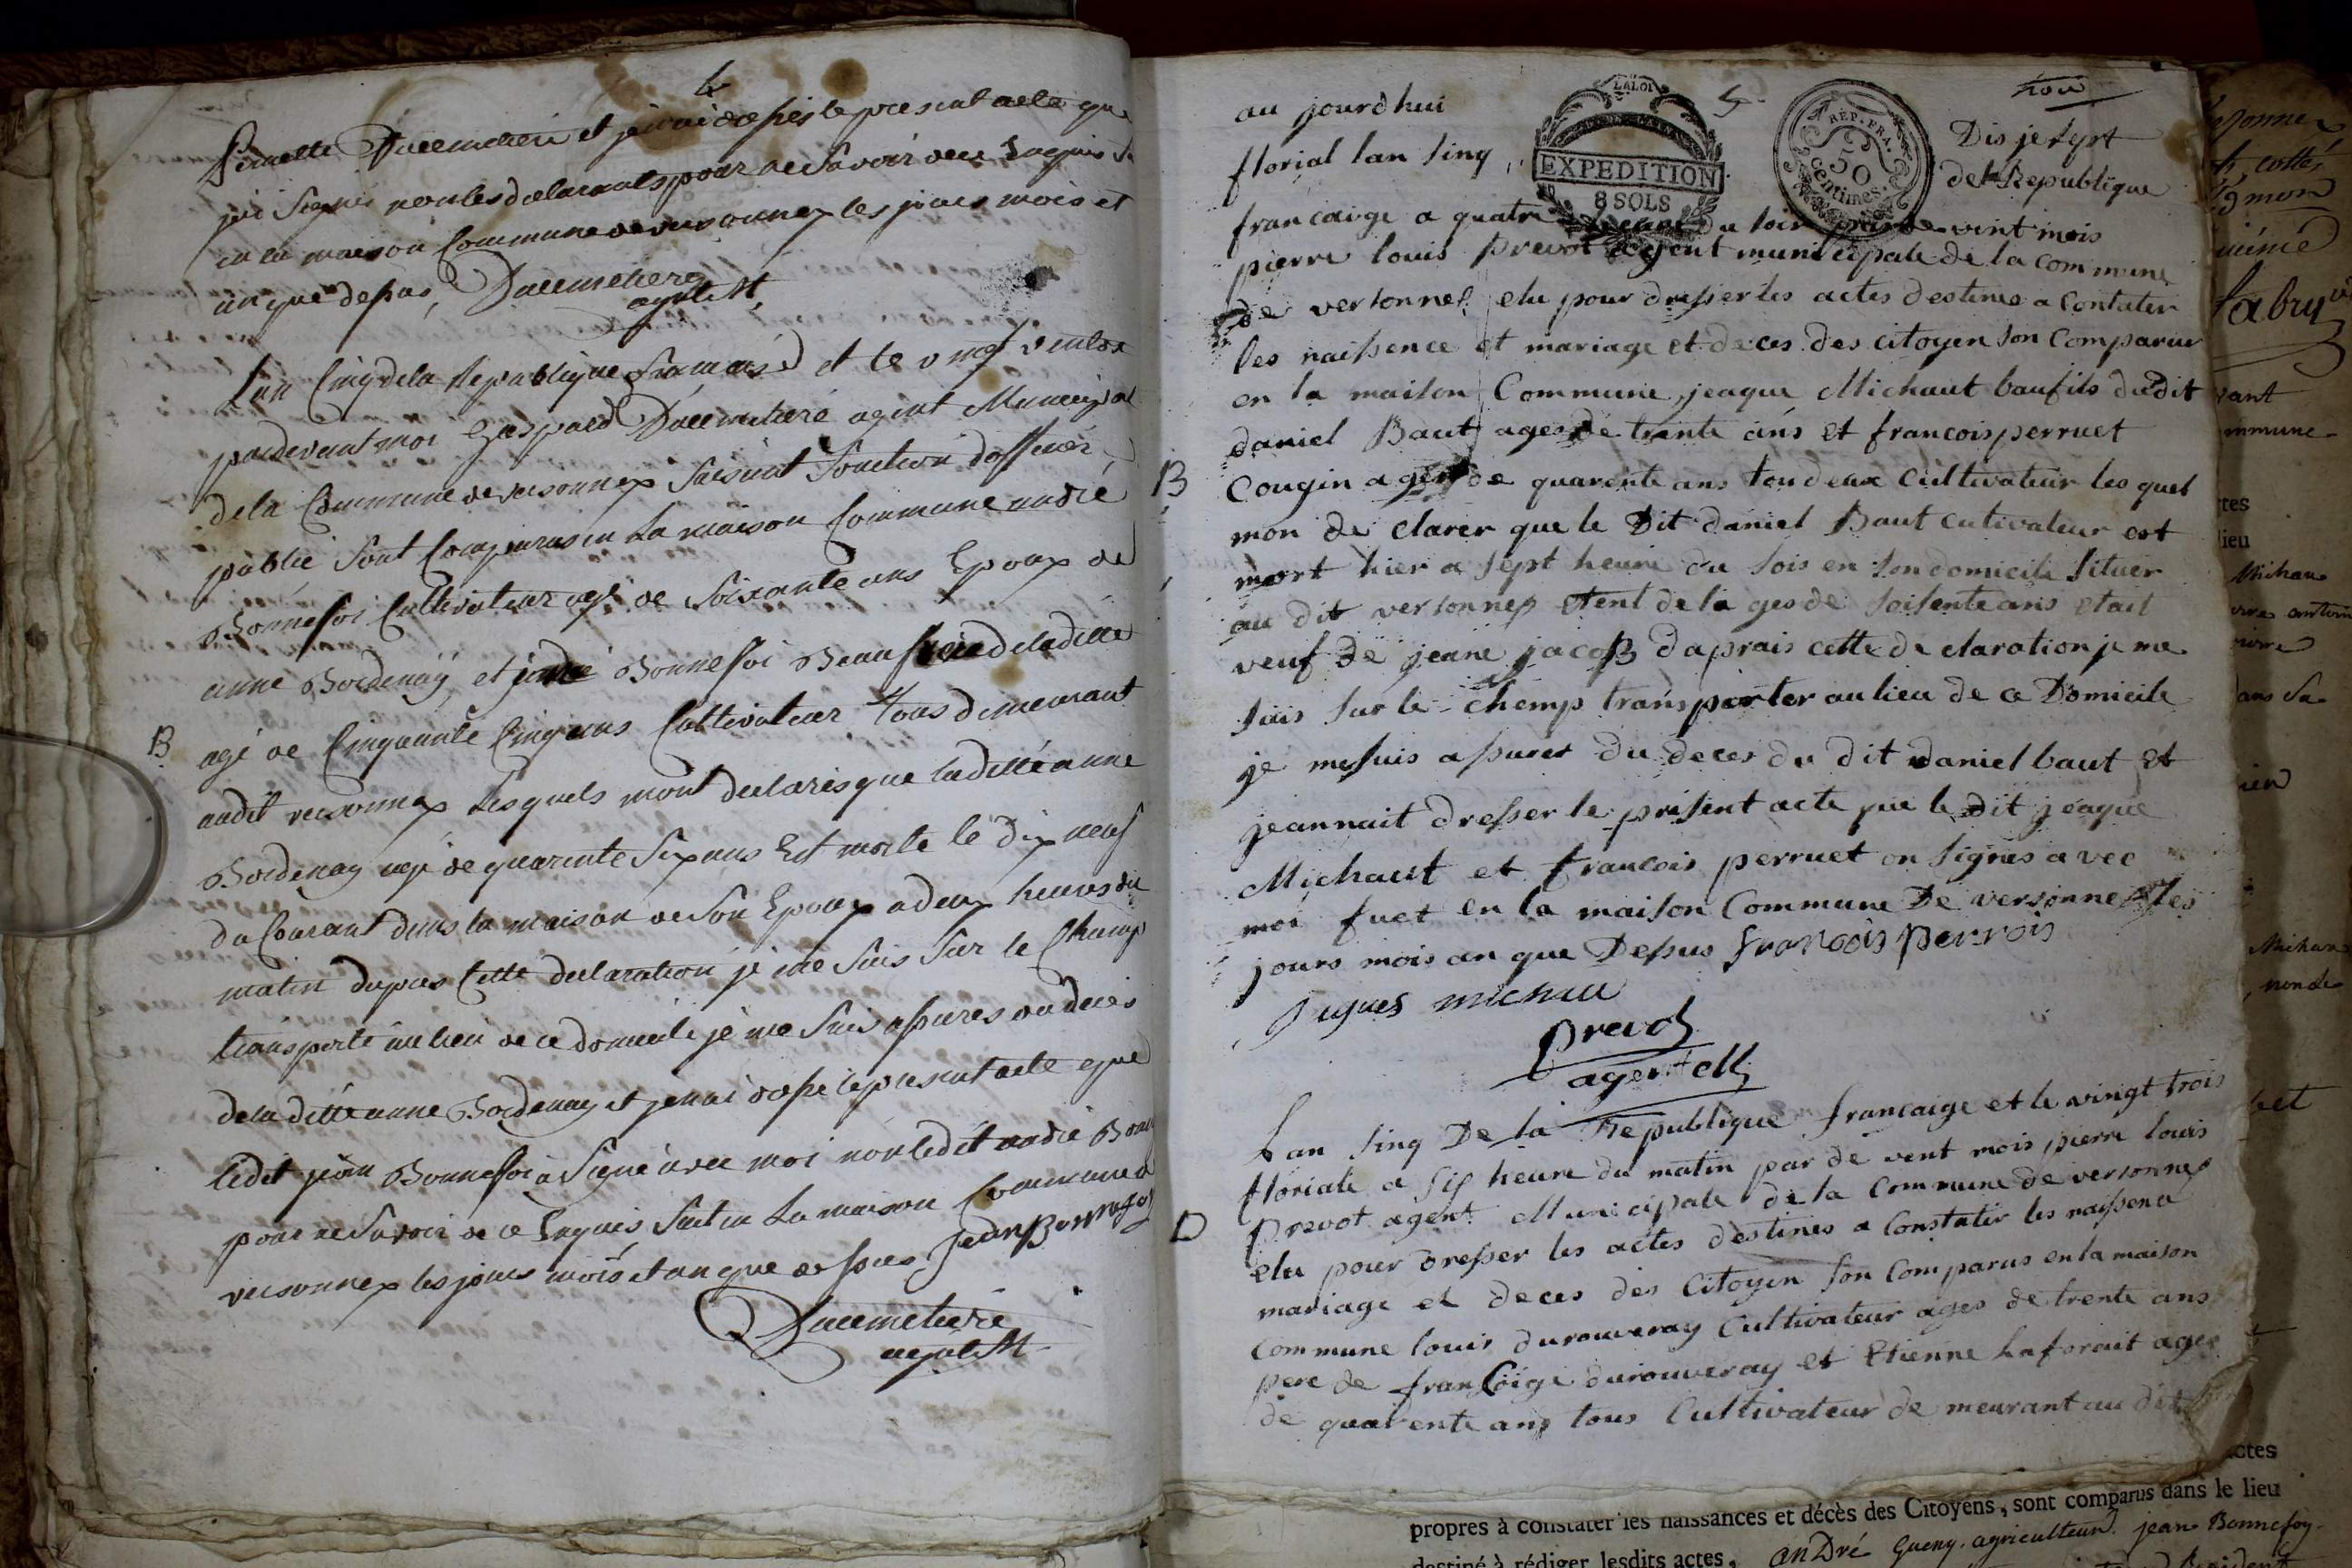 4
Pernette Duccmetiere et jen ai dressés le present acte que
jai signé non les declarants pour ne savoir de ce Enquis
en la maison Commune de versonnex les jours mois et
an que dessus, Duccmetiere
agent M.
Lan Cinq de la Republique francaise et le vingt ventos
pardevant moi Gaspard Duccmetiere agent Municipal
de la Commune de versonnex faisant fonction dofficier
public sont Comparus en La maison Commune andré
Bonnefoi Cultivateur agé de soixante ans Epoux de
anne Bordenay et Bonnefoi Beaufrere de ladite
B
agé de Cinquante Cinq ans Cultivateur Tous demeurant
audit versonnex Lesquels mont declarés que ladite anne
Bordenay agé de quarente six ans Est morte le dix neuf
du Courant dans la maison de son Epoux a deux heures du
matin dapres Cette declaration je me suis sur le Champ
transporté au lieu de ce domicile je me suis assures du deces
de la ditte anne Bordenay et jen ai dressé le present acte que
ledit jean Bonnefoi a signé avec moi non ledit andré Bonne
pour ne savoir de ce Enquis fait en La maison Commune d
versonnex les jours mois et an que dessus Jean Bonnefoy
Duccmetiere
agent M.
5
au jourdhui
LA LOI
EXPEDITION
8 SOLS
REP. FRA.
50
Centimes.
Dis je sept
florial lan sinq
de la Republique
francaige a quatre du soir vint mois
pierre louis prevot agent municipale de la commune
de versonnex elu pour dresser les actes destines a Contater
les naissence et mariage et deces des citoyen son Comparur
en la maison Commune, jeaque Michaut baufils dudit
daniel Baut ages de trente ans et francois perruet
B
Cougin ages de quarente ans tou deux Cultivateur les quel
mon de clarer que le Dit daniel Baut cutivateur est
mort hier a sept heure du sois en son domicile situer
au dit versonnex etent de la ges de soisente ans etait
veuf de jeane jacoB daprais cette de claration je me
suis sur le chemp transporter au lieu de ce Domicile
je me suis assurer du deces du dit daniel baut et
jeannait dresser le present acte que le dit jeaque
Michaut et francois perruet on signes avec
moi fuet en la maison Commune De versonnex les
jours mois an que Dessus francois perrois
Jaques michau
Prevot
agent M.
Lan sinq De la Republique francaige et le vingt trois
floriale a six heure du matin par de vent mois pierre louis
D
prevot agent Municipale de la Commune de versonnex
elu pour dresser les actes destines a Constater les naissence
mariage et deces des Citoyen son Comparus en la maison
Commune louis durouveray Cultivateur ages de trente ans
pere de francoige durouveray et Etienne Laforait ages
de quarente ans tous Cultivateur de meurant au dit
propres à constater les naissances et décès des Citoyens, sont comparus dans le lieu
destiné à rédiger lesdits actes, anDré Gueny. agriculteur. jean Bonnefoy.